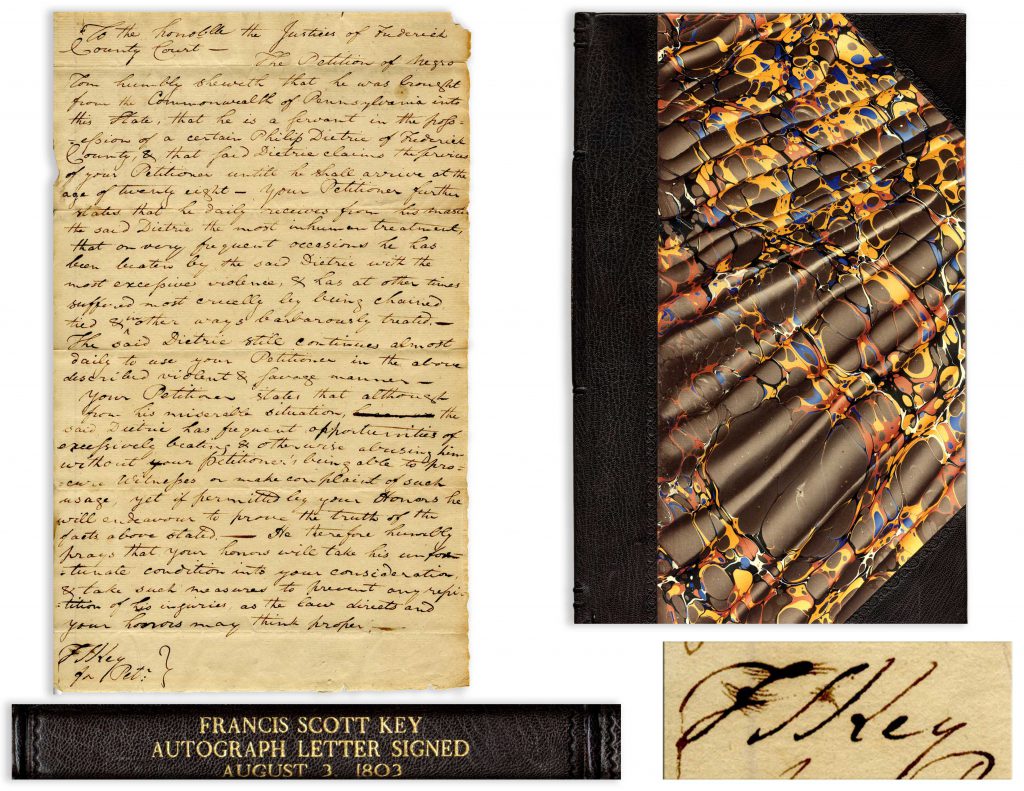 To the honoble the Justices of Frederick
County Court —
The Petition of Negro
Tom humbly sheweth that he was brought
from the Commonwealth of Pennsylvania into
this State, that he is a servant in the poss
-ession of a certain Philip Dietrie of Frederick
County, & that said Dietrie claims the services
of your Petitioner until he shall arrive at the
age of twenty eight — Your Petitioner further
states that he daily receives from his master
the said Dietrie the most inhuman treatment,
that on very frequent occasions he has
been beaten by the said Dietrie with the
most excessive violence, & has at other times
suffered most cruelly by being chained
tied & other ways barbarously treated. —
The said Dietrie still continues almost
daily to use your Petitioner in the above
described violent & savage manner —
Your Petitioner states that although
from his miserable situation, the
said Dietrie has frequent opportunities of
excessively beating & otherwise abusing him
without your Petitioner's being able to pro-
cure Witnesses or make complaint of such
usage yet if permitted by your Honors he
will endeavour to prove the truth of the
facts above stated. — He therefore humbly
prays that your honors will take his unfor
-tunate condition into your consideration,
& take such measures to prevent any repi-
-tition of his injuries as the law directs and
your honors may think proper. —
F S Key
for Petr.
FRANCIS SCOTT KEY
AUTOGRAPH LETTER SIGNED
AUGUST 3, 1803
F S Key